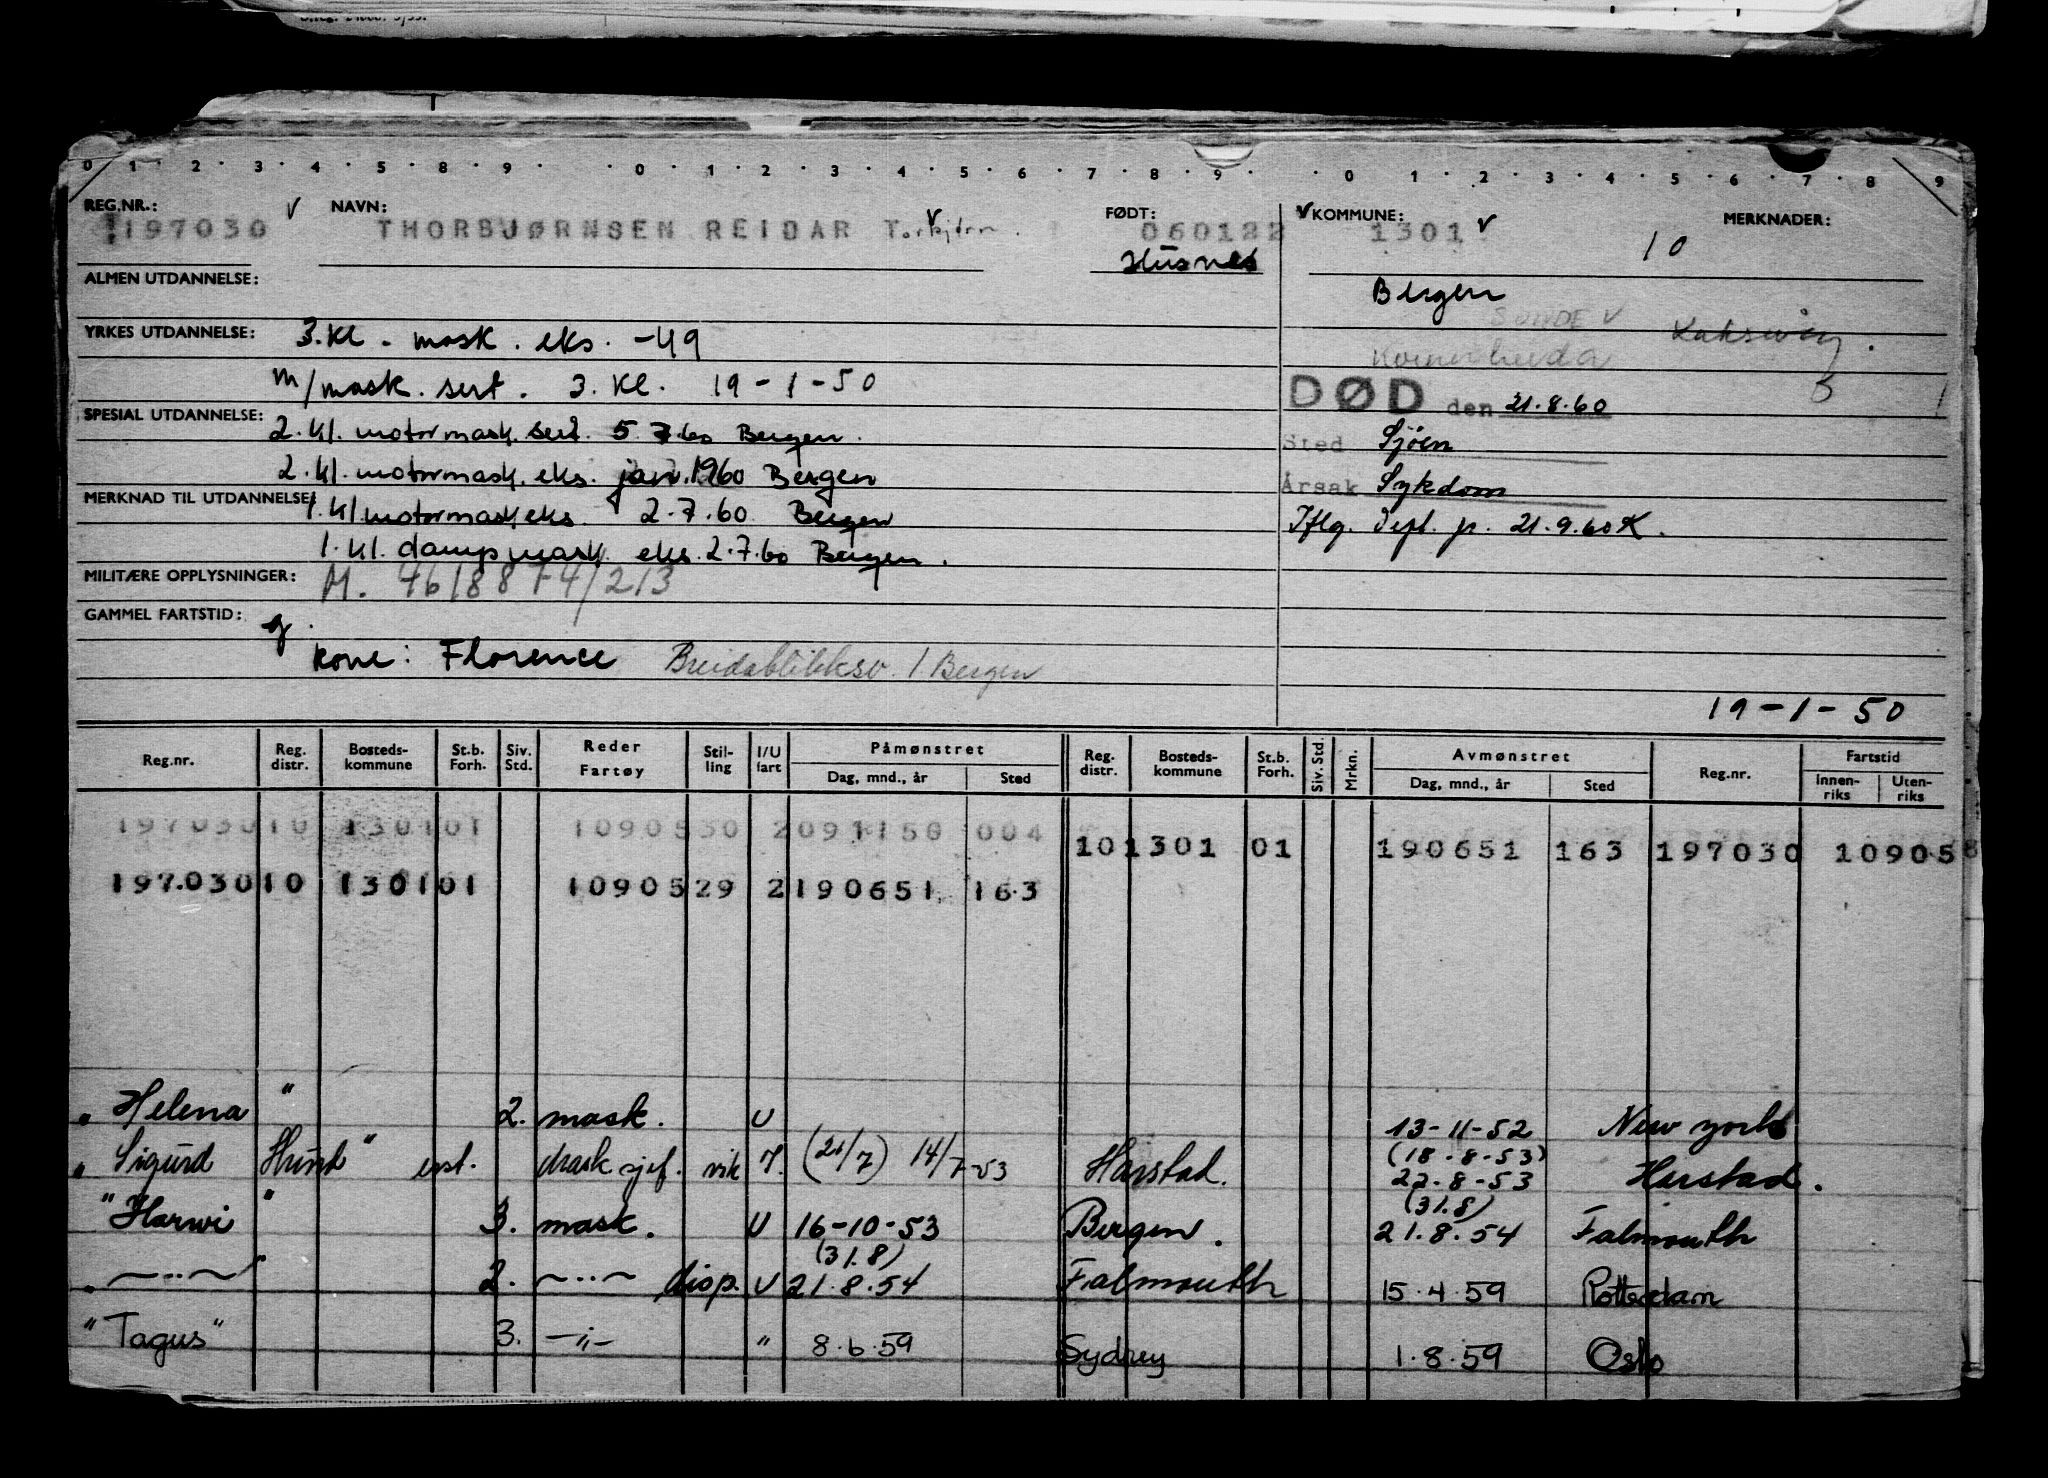 0 · 1 · 2 · 3 · 4 · 5 · 8 · 9 · 0 · 1 · 2 · 3 · 4 · 5 · 6 · 7 · 8 · 9 · 0 · 1 · 2 · 3 · 4 · 5 · 6 · 7 · 8 · 9
REG.NR.: NAVN: FØDT: KOMMUNE: MERKNADER:
197030 THORBJØRNSEN REIDAR Torbjörn. 060182 1301 10
Husnes
ALMEN UTDANNELSE: Bergen
SUNDE
YRKES UTDANNELSE: 3. Kl. mask. eks. -49
m/mask. sert. 3. Kl. 19-1-50
DØD den 21.8.60
SPESIAL UTDANNELSE: 2. kl. motormask. sert. 5.7.60 Bergen.
Sted Sjöen
2. kl. motormask. eks. jan. 1960 Bergen
Årsak Sykdom
MERKNAD TIL UTDANNELSE: 1. kl motormask. eks. 2.7.60 Bergen
Iflg. Dept. pr. 21.9.60 K.
1. kl. dampmask. eks. 2.7.60 Bergen.
MILITÆRE OPPLYSNINGER: M. 4618874/213
GAMMEL FARTSTID: g.
Kone: Florence Breidablikksv. 1. Bergen
19-1-50
Reg.nr. Reg. distr. Bosteds-kommune St.b. Forh. Siv. Std. Reder Fartøy Stil-ling I/U fart Påmønstret Dag, mnd., år Sted Reg. distr. Bosteds-kommune St.b. Forh. Siv. Std. Mrkn. Avmønstret Dag, mnd., år Sted Reg.nr. Fartstid Innen-riks Uten-riks
197030 10 1301 01 1090530 2 091150 004 10 1301 01 190651 163 197030 109058
197030 10 1301 01 1090529 2 190651 163
"Helena" 2. mask. U 13-11-52 New York
"Sigurd Hund" est. Mask sjef. vik I. (21/7) 14/7-53 Harstad. (18-8-53) 22-8-53 Harstad.
"Harwi" 3. mask. U 16-10-53 Bergen. (31.8) 21.8.54 Falmouth
" —..— " 2. —..— disp. U (31.8) 21.8.54 Falmouth 15.4.59 Rotterdam
"Tagus" 3. —"— " 8.6.59 Sydney 1.8.59 Oslo